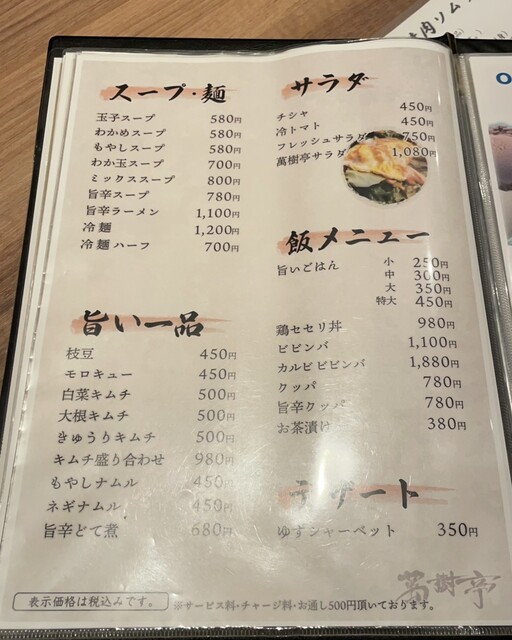 スープ・麺
玉子スープ 580円
わかめスープ 580円
もやしスープ 580円
わか玉スープ 700円
ミックススープ 800円
旨辛スープ 780円
旨辛ラーメン 1,100円
冷麺 1,200円
冷麺ハーフ 700円
旨い一品
枝豆 450円
モロキュー 450円
白菜キムチ 500円
大根キムチ 500円
きゅうりキムチ 500円
キムチ盛り合わせ 980円
もやしナムル 450円
ネギナムル 450円
旨辛どて煮 680円
サラダ
チシャ 450円
冷トマト 450円
フレッシュサラダ 750円
萬樹亭サラダ 1,080円
飯メニュー
旨いごはん 小 250円
中 300円
大 350円
特大 450円
鶏セセリ丼 980円
ビビンバ 1,100円
カルビビビンバ 1,880円
クッパ 780円
旨辛クッパ 780円
お茶漬け 380円
デザート
ゆずシャーベット 350円
萬樹亭
表示価格は税込みです。
※サービス料・チャージ料・お通し500円頂いております。